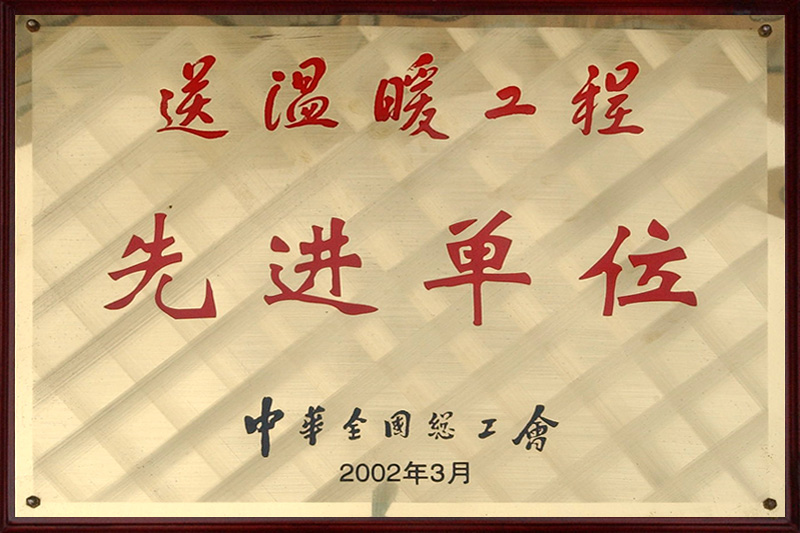 送温暖工程
先进单位
中华全國總工會
2002年3月